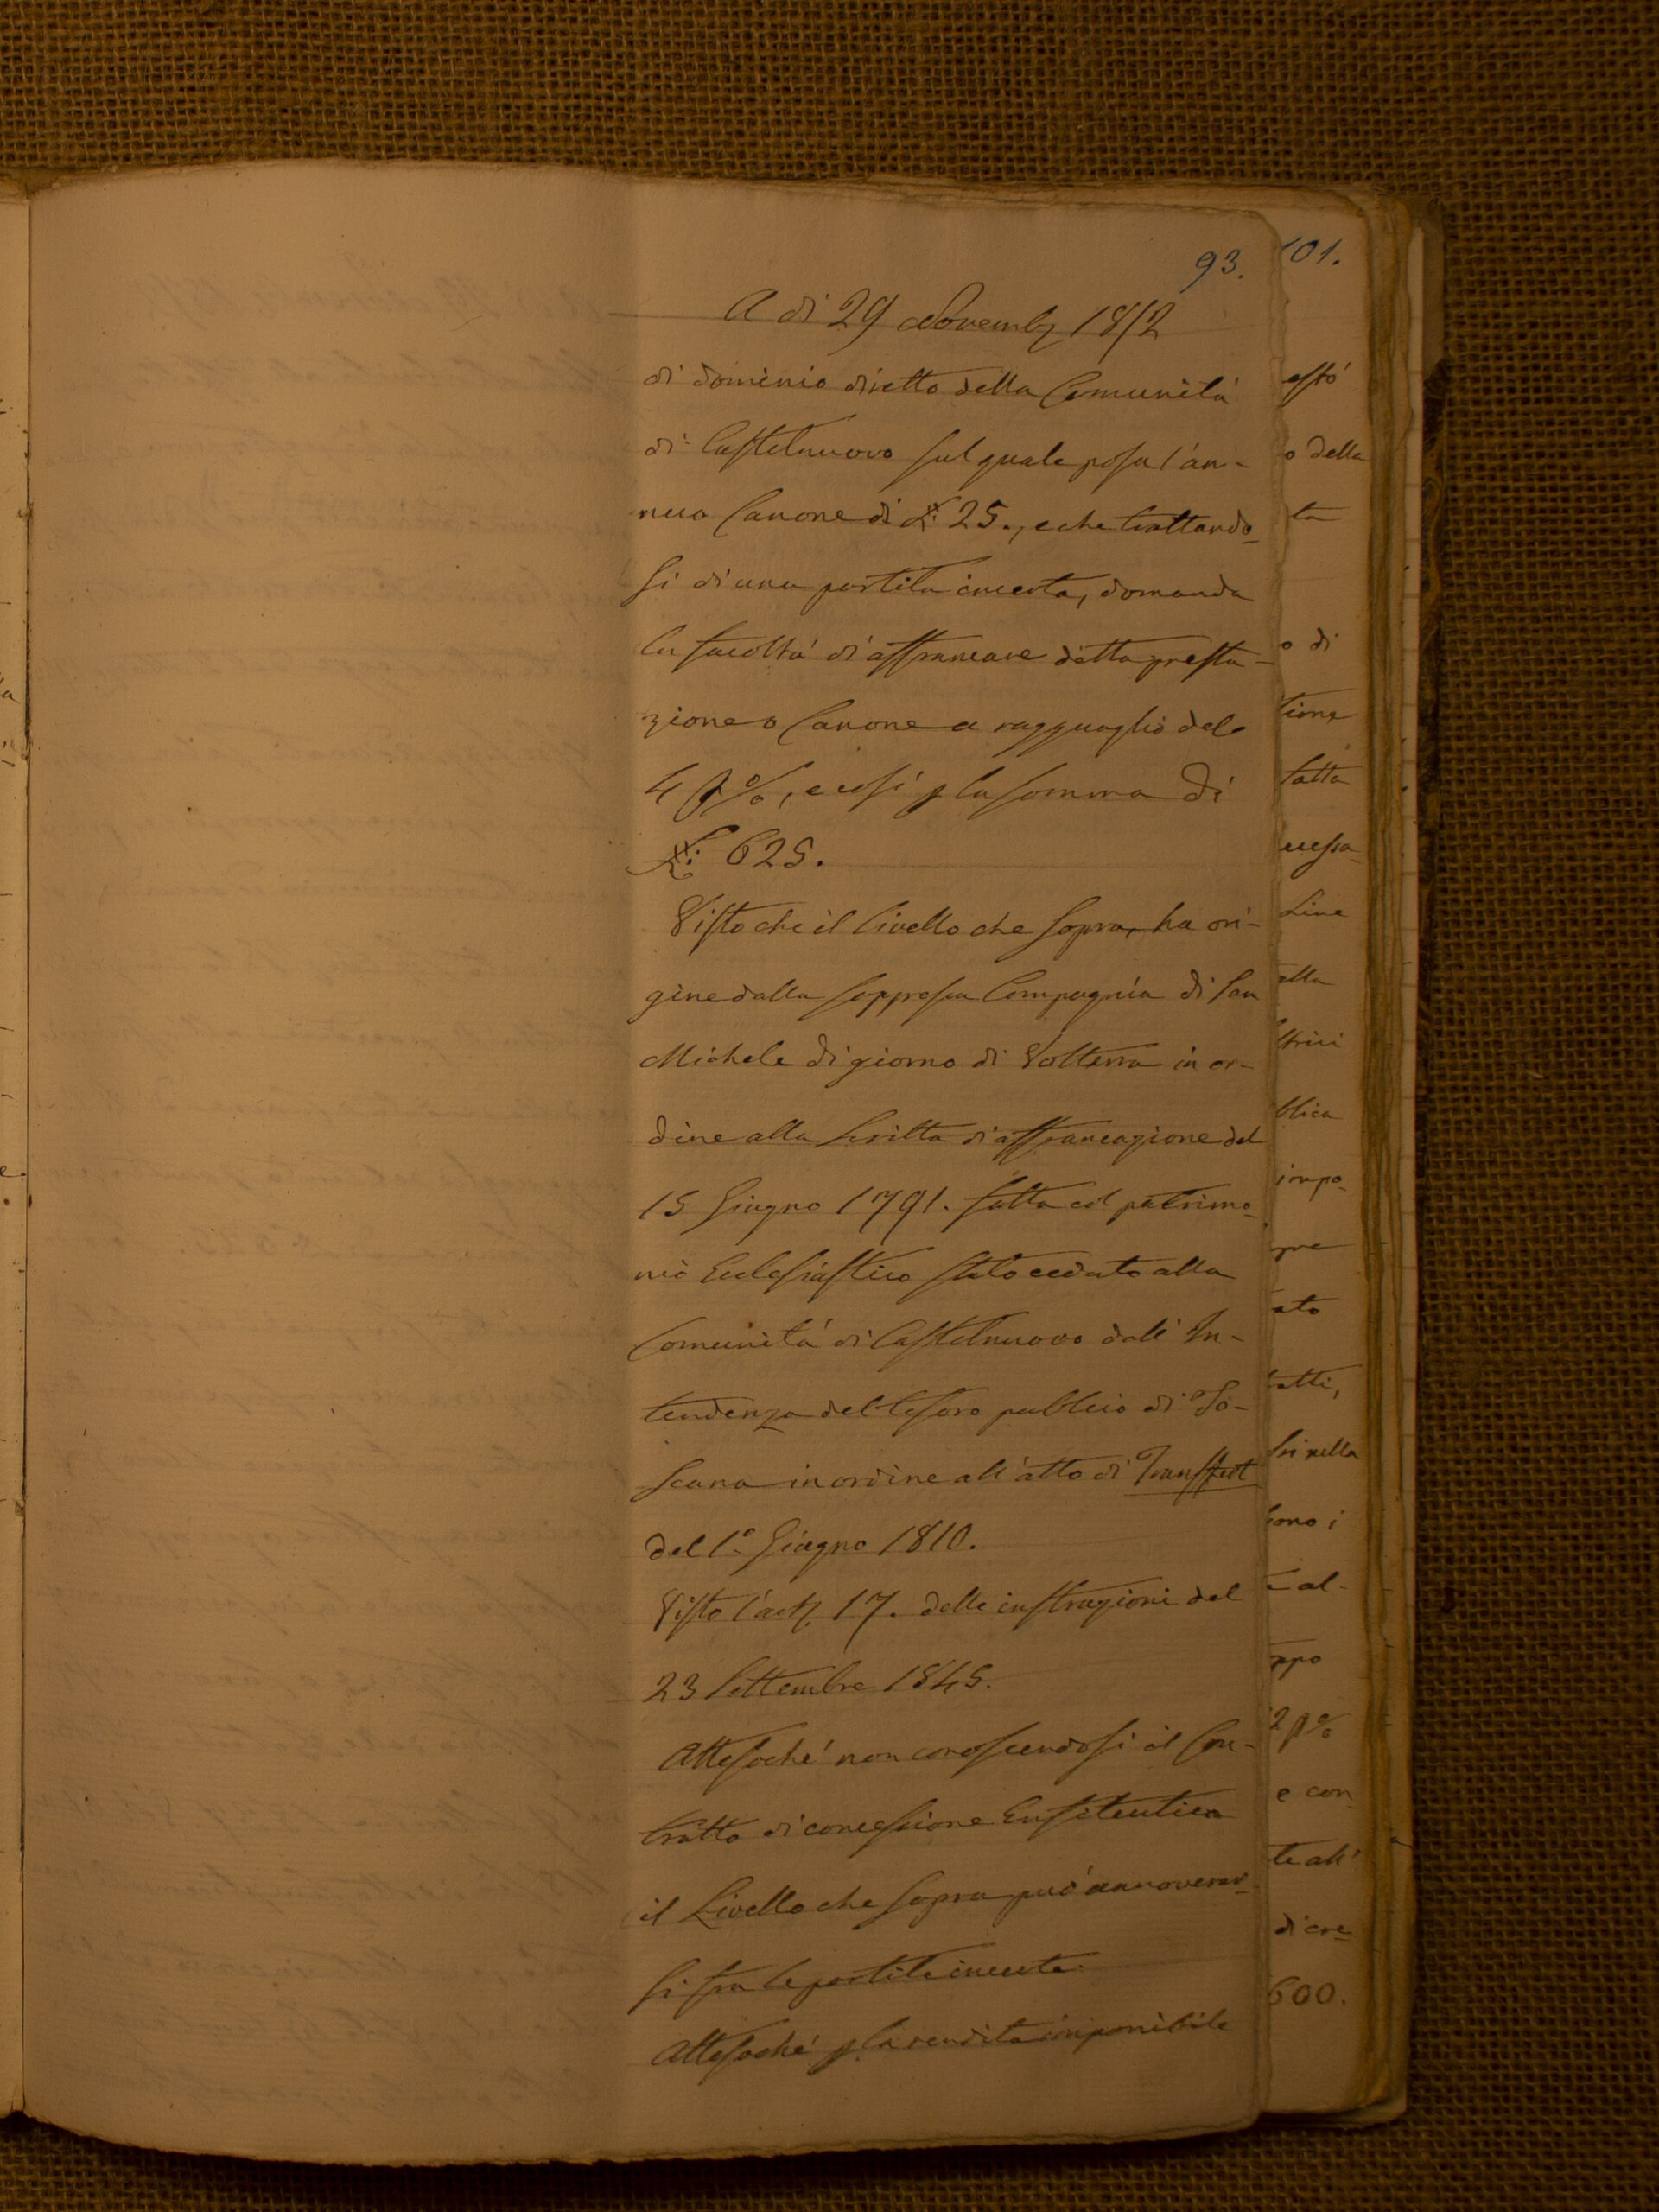 93.
A di 29 Novembre 1852
di dominio diretto della Comunità
di Castelnuovo sul quale posa l'an-
nuo Canone di £ 25., e che trattando-
si di una partita incerta, domanda
la facoltà di affrancare detta presta-
zione o Canone a ragguaglio del
4 p%, e così p la somma di
£ 625.
Visto che il livello che sopra, ha ori-
gine dalla soppressa Compagnia di San
Michele di giorno di Volterra in or-
dine alla Scritta di affrancazione del
15 Giugno 1791. fatta col patrimo-
nio Ecclesiastico stato ceduto alla
Comunità di Castelnuovo dall' In-
tendenza del tesoro publico di To-
scana in ordine all'atto di Transfert
del 1° Giugno 1810.
Visto l'art. 17. delle instruzioni del
23 Settembre 1845.
Attesochè non conoscendosi il Con-
tratto di concessione Enfiteutica
il Livello che sopra può annoverar-
si fra le partite incerte.
Attesochè p la rendita imponibile
101.
o della
ta
o di
zione
tatta
ella
blica
impo-
ato
tatti,
si nella
al-
2 p%
e con
te all'
di cre-
600.